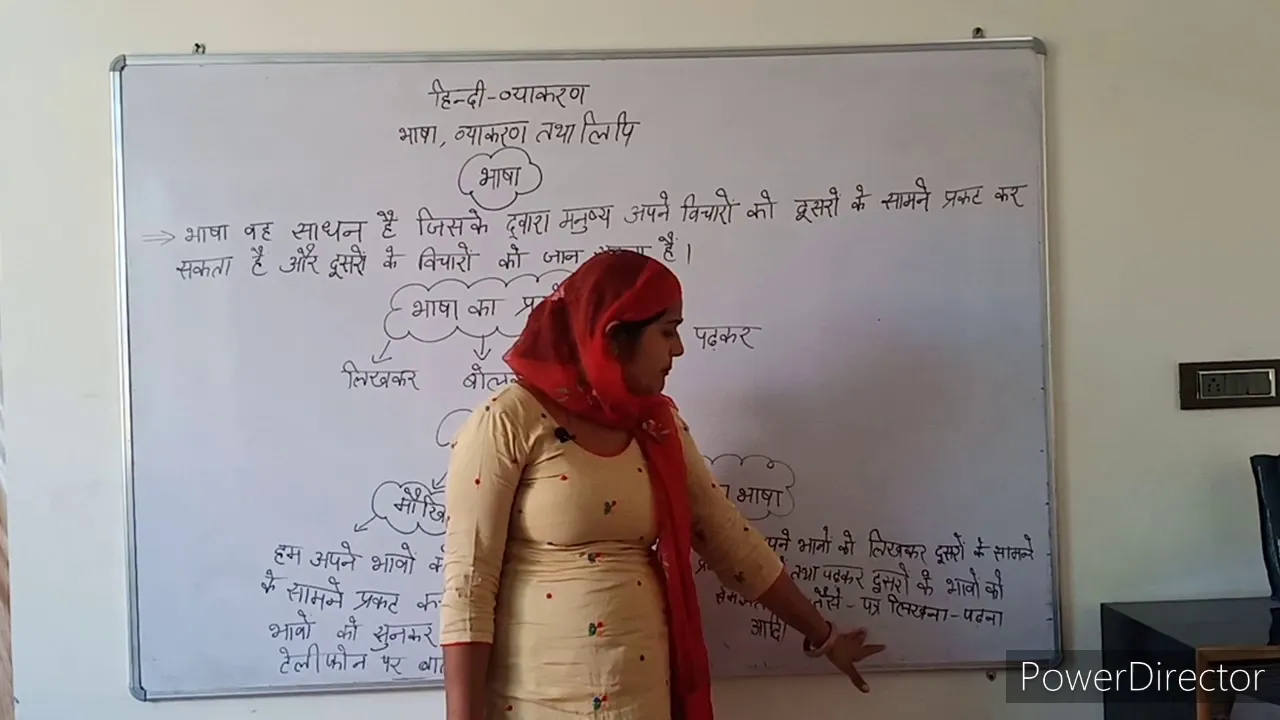 हिन्दी-व्याकरण
भाषा, व्याकरण तथा लिपि
भाषा
⇒ भाषा वह साधन है जिसके द्वारा मनुष्य अपने विचारों को दूसरों के सामने प्रकट कर
सकता है और दूसरों के विचारों को जान है।
भाषा का
लिखकर पढ़कर
भाषा
हम अपने भावों को
के सामने प्रकट
भावों को सुनकर
टेलीफोन पर
भावों को लिखकर दूसरों के सामने
तथा पढ़कर दूसरों के भावों को
जैसे - पत्र लिखना - पढना
आदि।
PowerDirector